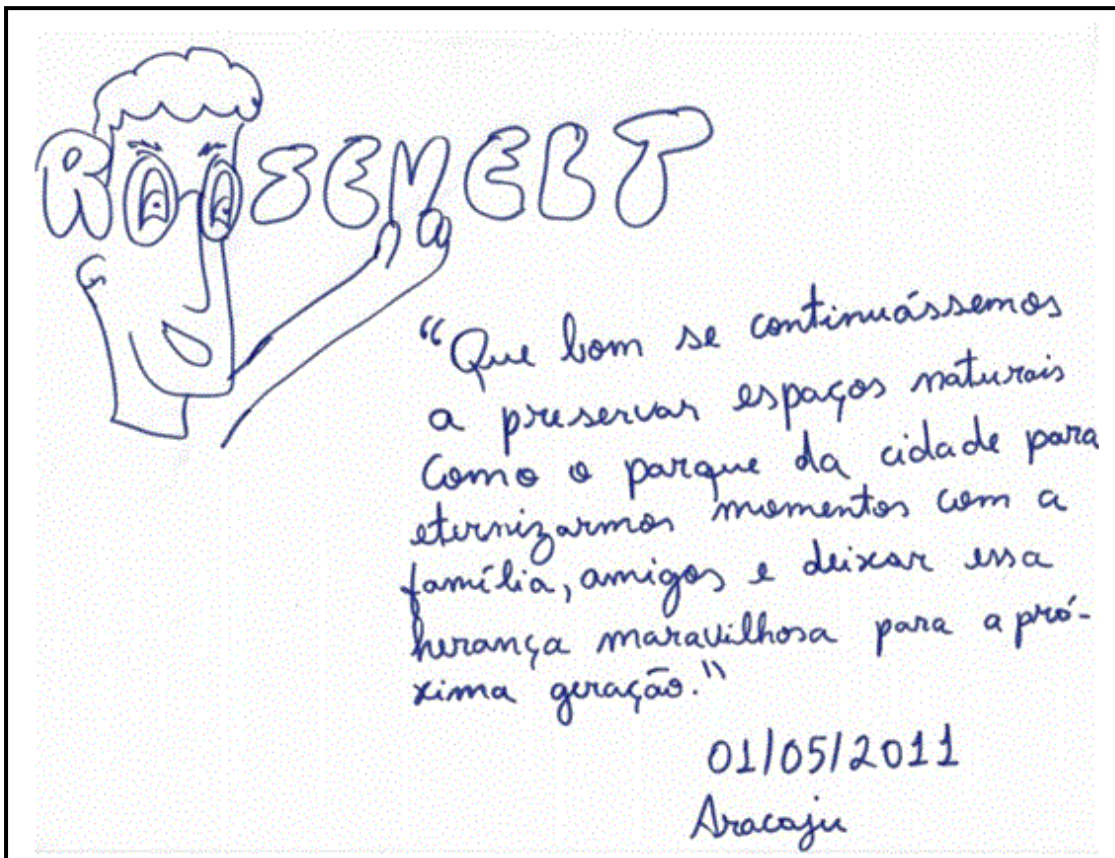 ROOSEMEBT
“Que bom se continuássemos
a preservar espaços naturais
como o parque da cidade para
eternizarmos momentos com a
família, amigos e deixar essa
herança maravilhosa para a pró-
xima geração.”
01/05/2011
Aracaju